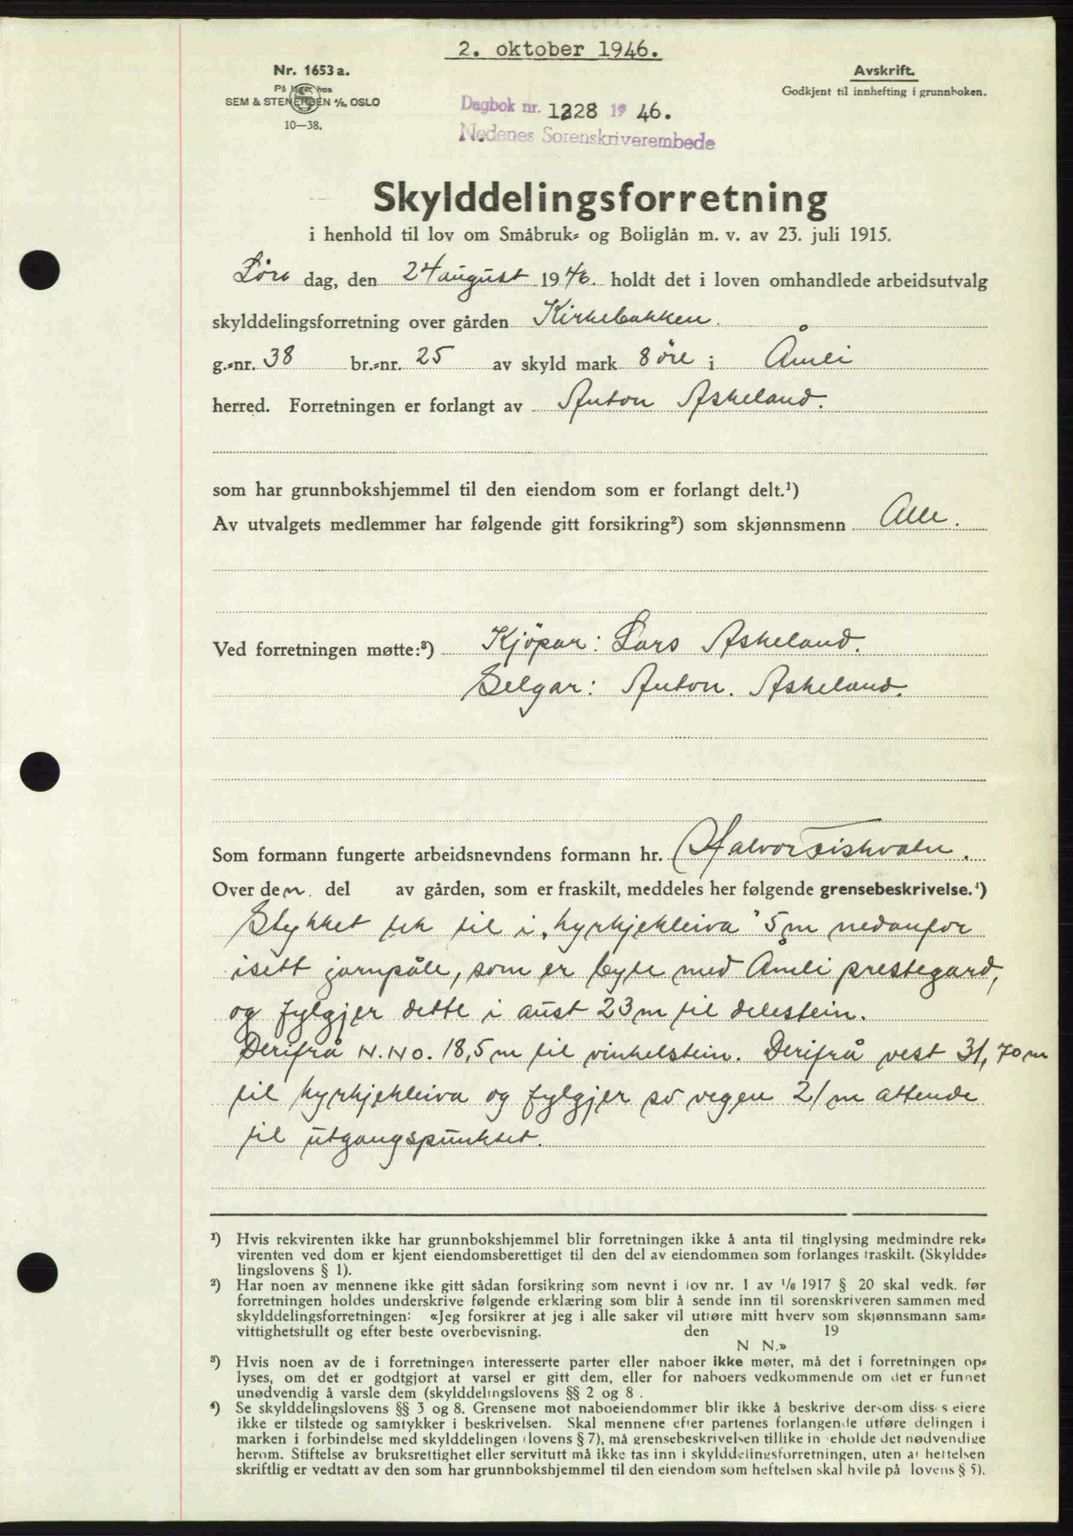 2. oktober 1946.
Nr. 1653a.
På lager hos
SEM & STENERSEN A/S, OSLO
10—38.
Avskrift.
Godkjent til innhefting i grunnboken.
Dagbok nr. 1228 19 46.
Nedenes Sorenskriverembede
Skylddelingsforretning
i henhold til lov om Småbruk- og Boliglån m. v. av 23. juli 1915.
Lör dag, den 24 august 1946. holdt det i loven omhandlede arbeidsutvalg
skylddelingsforretning over gården Kirkebakken.
g.-nr. 38 br.-nr. 25 av skyld mark 8 öre i Åmli
herred. Forretningen er forlangt av Anton Askeland.
som har grunnbokshjemmel til den eiendom som er forlangt delt.¹)
Av utvalgets medlemmer har følgende gitt forsikring²) som skjønnsmenn Alle.
Ved forretningen møtte:³) Kjöpar: Lars Askeland.
Selgar: Anton. Askeland.
Som formann fungerte arbeidsnevndens formann hr. Halvor Fiskvatn.
Over den del av gården, som er fraskilt, meddeles her følgende grensebeskrivelse.⁴)
Stykket tek til i „kyrkjekleiva" 5 m nedanfor
isett jarnpåle, som er byte med Åmli prestegard,
og fylgjer dette i aust 23 m til delestein.
Derifrå N.NO. 18,5 m til vinkelstein. Derifrå vest 31,70 m
til kyrkjekleiva og fylgjer so vegen 21 m attende
til utgangspunktet.
¹) Hvis rekvirenten ikke har grunnbokshjemmel blir forretningen ikke å anta til tinglysing medmindre rek-
virenten ved dom er kjent eiendomsberettiget til den del av eiendommen som forlanges fraskilt. (Skyldde-
lingslovens § 1).
²) Har noen av mennene ikke gitt sådan forsikring som nevnt i lov nr. 1 av 1/6 1917 § 20 skal vedk. før
forretningen holdes underskrive følgende erklæring som blir å sende inn til sorenskriveren sammen med
skylddelingsforretningen: «Jeg forsikrer at jeg i alle saker vil utføre mitt hverv som skjønnsmann sam-
vittighetsfullt og efter beste overbevisning. den 19
N N.»
³) Hvis noen av de i forretningen interesserte parter eller naboer ikke møter, må det i forretningen op-
lyses, om det er godtgjort at varsel er gitt dem, eller for naboers vedkommende om det er funnet
unødvendig å varsle dem (skylddelingslovens §§ 2 og 8.
⁴) Se skylddelingslovens §§ 3 og 8. Grensene mot naboeiendommer blir ikke å beskrive dersom disses eiere
ikke er tilstede og samtykker i beskrivelsen. Skal mennene efter partenes forlangende utføre delingen i
marken i forbindelse med skylddelingen (lovens § 7), må grensebeskrivelsen tillike inneholde det nødvendige
herom. Stiftelse av bruksrettighet eller servitutt må ikke tas inn i skylddelingsforretningen, uten at heftelsen
skriftlig er vedtatt av den som har grunnbokshjemmel til den eiendom som heftelsen skal hvile på lovens § 5).